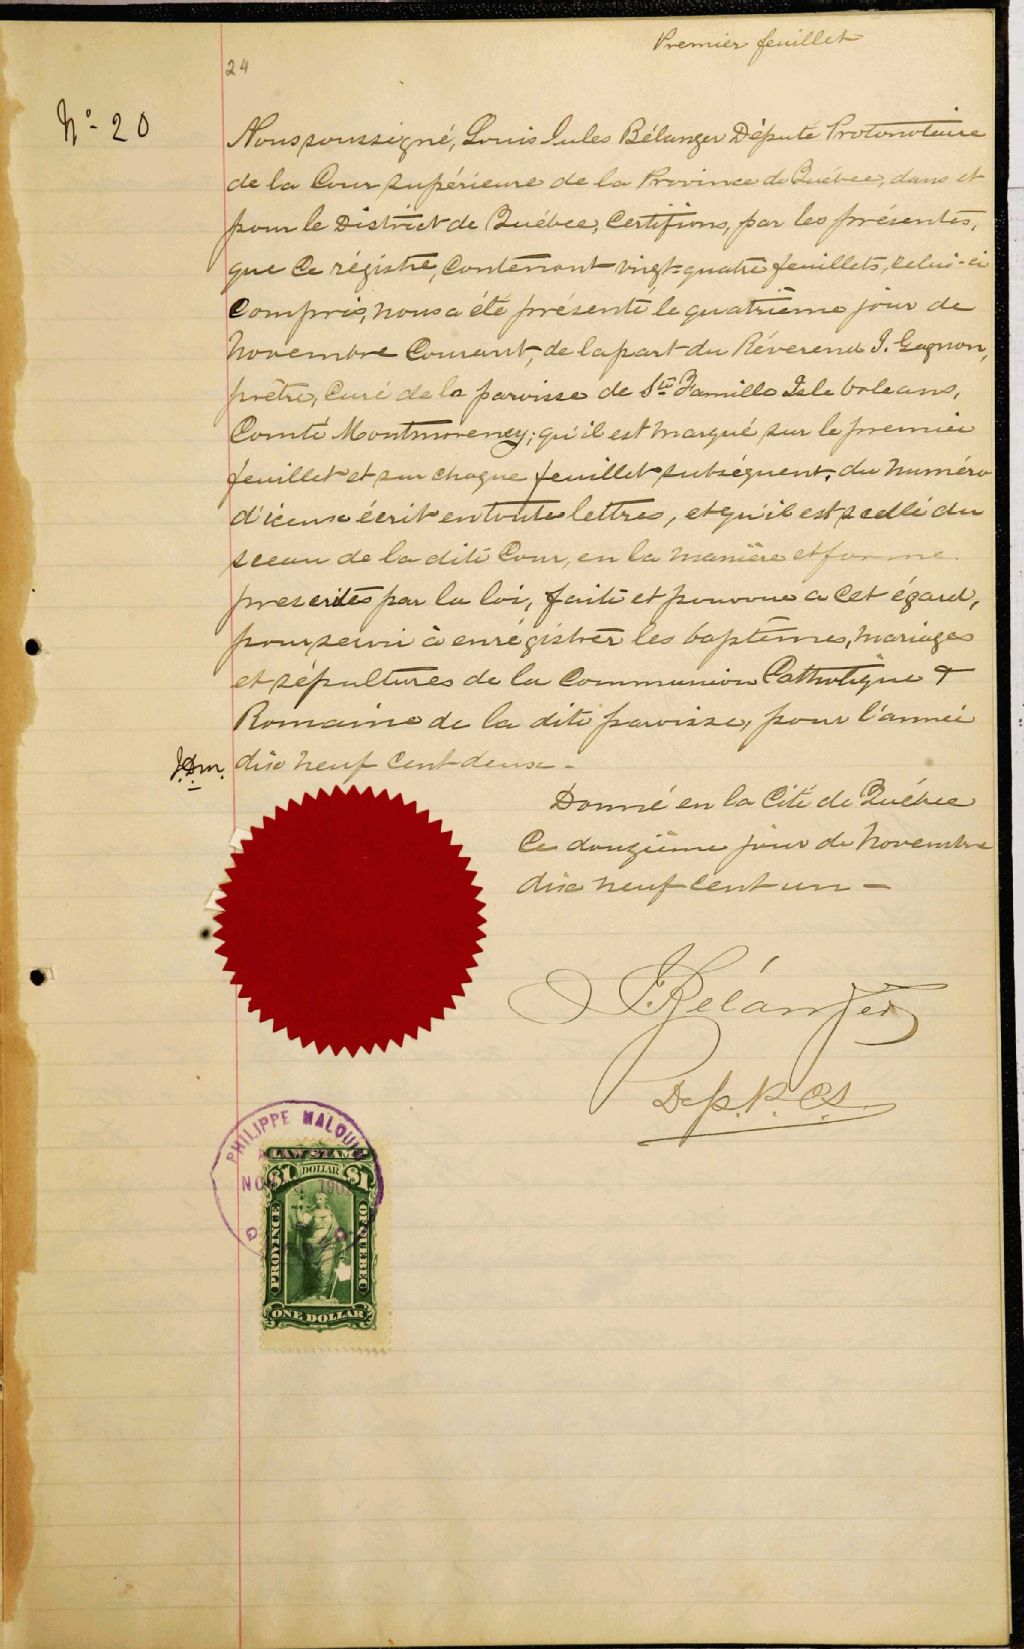 Premier feuillet
24
No- 20
Nous soussigné, Louis Jules Bélanger Député Protonotaire
de la Cour supérieure de la Province de Québec, dans et
pour le District de Québec, Certifions, par les présentes,
que ce régistre, contenant vingt-quatre feuillets, celui-ci
compris, nous a été présenté le quatrième jour de
Novembre Courant, de la part du Révérend J. Gagnon,
prêtre, Curé de la paroisse de Ste Famille Isle
Comté Montmorency; qu'il est marqué sur le premier
feuillet et sur chaque feuillet subséquent, du numéro
d'iceux écrit en toutes lettres, et qu'il est scellé du
sceau de la dite Cour, en la manière et forme
prescrites par la loi, faite et pourvue a cet égard,
pour servir à enrégistrer les baptêmes, mariages
et sépultures de la Communion Catholique &
Romaine de la dite paroisse, pour l'année
dix neuf cent deux -
Donné en la Cité de Québec
Ce douzième jour de Novembre
dix neuf cent un -
J. Bélanger
Dep. P. C. S.
PHILIPPE MALOUIN
LAW STAMP
$1 DOLLAR $1
NO 190
PROVINCE OF QUEBEC
ONE DOLLAR